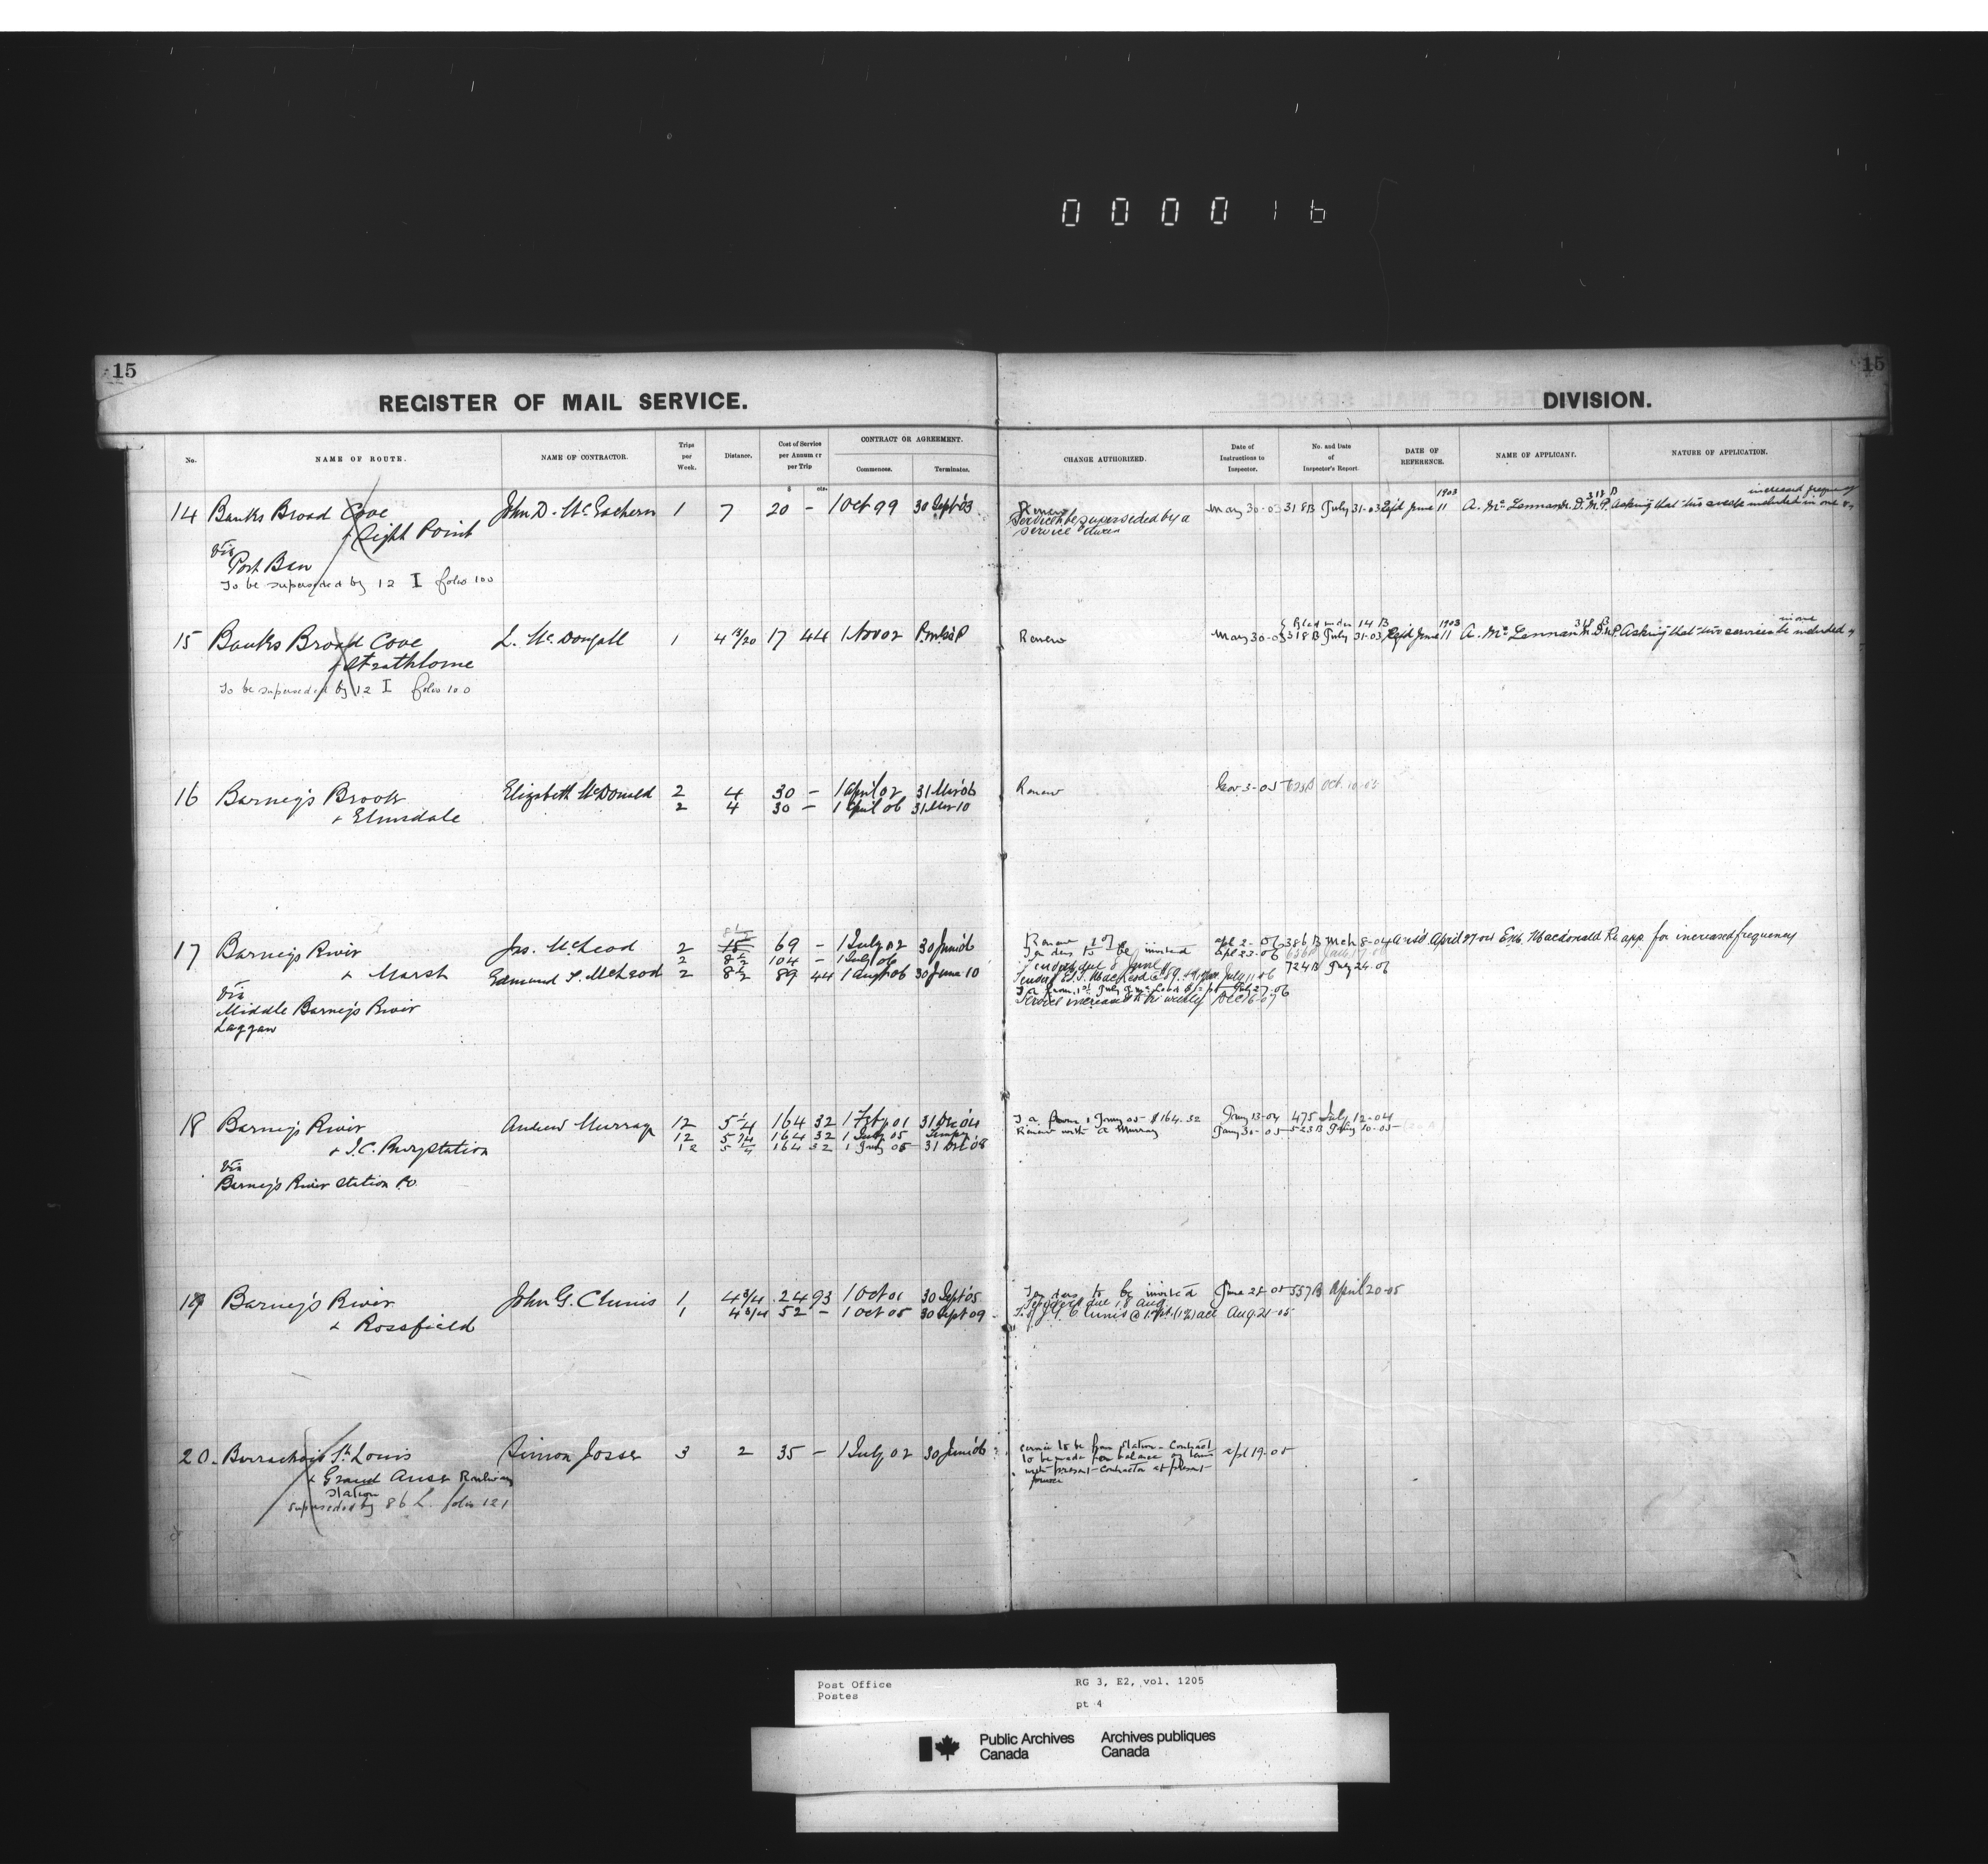 000016
15
15
REGISTER OF MAIL SERVICE.
DIVISION.
No. NAME OF ROUTE. NAME OF CONTRACTOR. Trips per Week. Distance. Cost of Service per Annum or per Trip CONTRACT OR AGREEMENT. Commences. Terminates. CHANGE AUTHORIZED. Date of Instructions to Inspector. No. and Date of Inspector's Report. DATE OF REFERENCE. NAME OF APPLICANT. NATURE OF APPLICATION.
$ cts.
14 Banks Broad Cove John D. McEachern 1 7 20 – 1 Oct 99 30 Sept 03 Renew May 30-03 318 B July 31-03 Refd June 11 1903 A. McLennan M.P. 318 B Asking that two services be included in one increased frequency
& Sight Point Service to be superseded by a
service
via
Port Ban
To be superseded by 12 I folio 100
15 Banks Broad Cove L. McDougall 1 4 13/20 17 44 1 Nov 02 Renew May 30-03 318 B July 31-03 Filed under 14 B Refd June 11 1903 A. McLennan 318 B Asking that two services be included in one
& Strathlorne
To be superseded by 12 I folio 100
16 Barney's Brook Elizabeth McDonald 2 4 30 – 1 April 02 31 Mar 06 Renew Nov 3-05 Oct 10-05
& Elmsdale 2 4 30 – 1 April 06 31 Mar 10
17 Barney's River Jas. McLeod 2 8½ 15 69 – 1 July 02 30 June 06 Renew apl 2-06 386 B Mch 8-04 Ansd April 27-04 E.M. Macdonald Re app. for increased frequency
2 8½ 104 – 1 July 06 Tenders to be invited apl 23-06
& Marsh Edmund S. McLeod 2 8½ 89 44 1 Aug 06 30 June 10 Tenders due 8 June 724 B July 24-06
July 11-06
July 27-06
via
Middle Barney's River Service increased to tri weekly Dec 16-07
Laggan
18 Barney's River Andrew Murray 12 5¼ 164 32 1 Feby 01 31 Dec 04 T a from 1 Jany 05 $164.32 Jany 13-04 475 July 12-04
12 5¼ 164 32 Tempy Renew with A Murray Jany 30-05 523 B Jany 10-05
& I.C. Rwy Station 12 5¼ 164 32 1 Jany 05 31 Dec 08
via
Barney's River Station P.O.
19 Barney's River John G. Clunis 1 4 3/4 24 93 1 Oct 01 30 Sept 05 Tenders to be invited June 28-05 557 B April 20-05
1 4 3/4 52 – 1 Oct 05 30 Sept 09 Tenders due 18 Aug
& Rossfield Aug. 21-05
20. Barrachois St. Louis Simon Josse 3 2 35 – 1 July 02 30 June 06 Service to be from Station – Contract apl 19-05
& Grand Anse Railway to be made for balance of term
Station with present contractor at present
superseded by 86 L. folio 121
Post Office RG 3, E2, vol. 1205
Postes
pt 4
Public Archives Archives publiques
Canada Canada